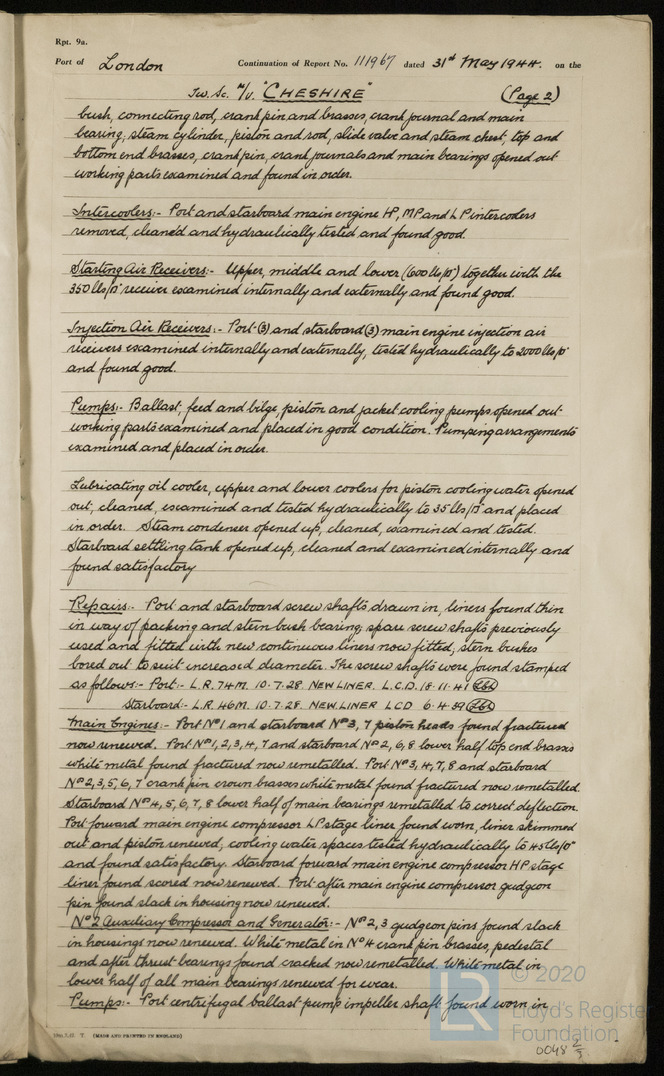 Rpt. 9a.
Port of London Continuation of Report No. 111967 dated 31st May 1944. on the
Tw. Sc. M/V. "CHESHIRE" (Page 2)
bush, connecting rod, crank pin and brasses, crank journal and main
bearing; steam cylinder, piston and rod, slide valve and steam chest, top and
bottom end brasses, crankpin, crank journals and main bearings opened out
working parts examined and found in order.
Intercoolers:- Port and starboard main engine HP, MP and LP intercoolers
removed, cleaned and hydraulically tested and found good.
Starting Air Receivers:- Upper, middle and lower (600 lbs/□") together with the
350 lbs/□" receiver examined internally and externally and found good.
Injection Air Receivers:- Port (3) and starboard (3) main engine injection air
receivers examined internally and externally, tested hydraulically to 2000 lbs/□"
and found good.
Pumps:- Ballast, feed and bilge, piston and jacket cooling pumps opened out
working parts examined and placed in good condition. Pumping arrangements
examined and placed in order.
Lubricating oil cooler, upper and lower coolers for piston cooling water opened
out, cleaned, examined and tested hydraulically to 35 lbs/□" and placed
in order. Steam condenser opened up, cleaned, examined and tested.
Starboard settling tank opened up, cleaned and examined internally and
found satisfactory
Repairs:- Port and starboard screw shafts drawn in, liners found thin
in way of packing and stern bush bearing, spare screw shafts previously
used and fitted with new continuous liners now fitted, stern bushes
bored out to suit increased diameter. The screw shafts were found stamped
as follows:- Port:- L.R. 74M. 10.7.28. NEW LINER. L.C.D. 18.11.41
Starboard:- L.R. 46M. 10.7.28. NEW LINER LCD 6.4.39
Main Engines:- Port No 1 and starboard No 3, 7 piston heads found fractured
now renewed. Port No 1, 2, 3, 4, 7 and starboard No 2, 6, 8 lower half top end brasses
white metal found fractured now remetalled. Port No 3, 4, 7, 8 and starboard
No 2, 3, 5, 6, 7 crank pin crown brasses white metal found fractured now remetalled.
Starboard No 4, 5, 6, 7, 8 lower half of main bearings remetalled to correct deflection.
Port forward main engine compressor LP stage liner found worn, liner skimmed
out and piston renewed, cooling water spaces tested hydraulically to 45 lbs/□"
and found satisfactory. Starboard forward main engine compressor HP stage
liner found scored now renewed. Port after main engine compressor gudgeon
pin found slack in housing now renewed.
No 2 Auxiliary Compressor and Generator:- No 2, 3 gudgeon pins found slack
in housings now renewed. White metal in No 4 crank pin brasses, pedestal
and after thrust bearings found cracked now remetalled. White metal in
lower half of all main bearings renewed for wear.
Pumps:- Port centrifugal ballast pump impeller shaft found worn in
(MADE AND PRINTED IN ENGLAND)
LR
© 2020
Lloyd's Register
Foundation
0048 2/3